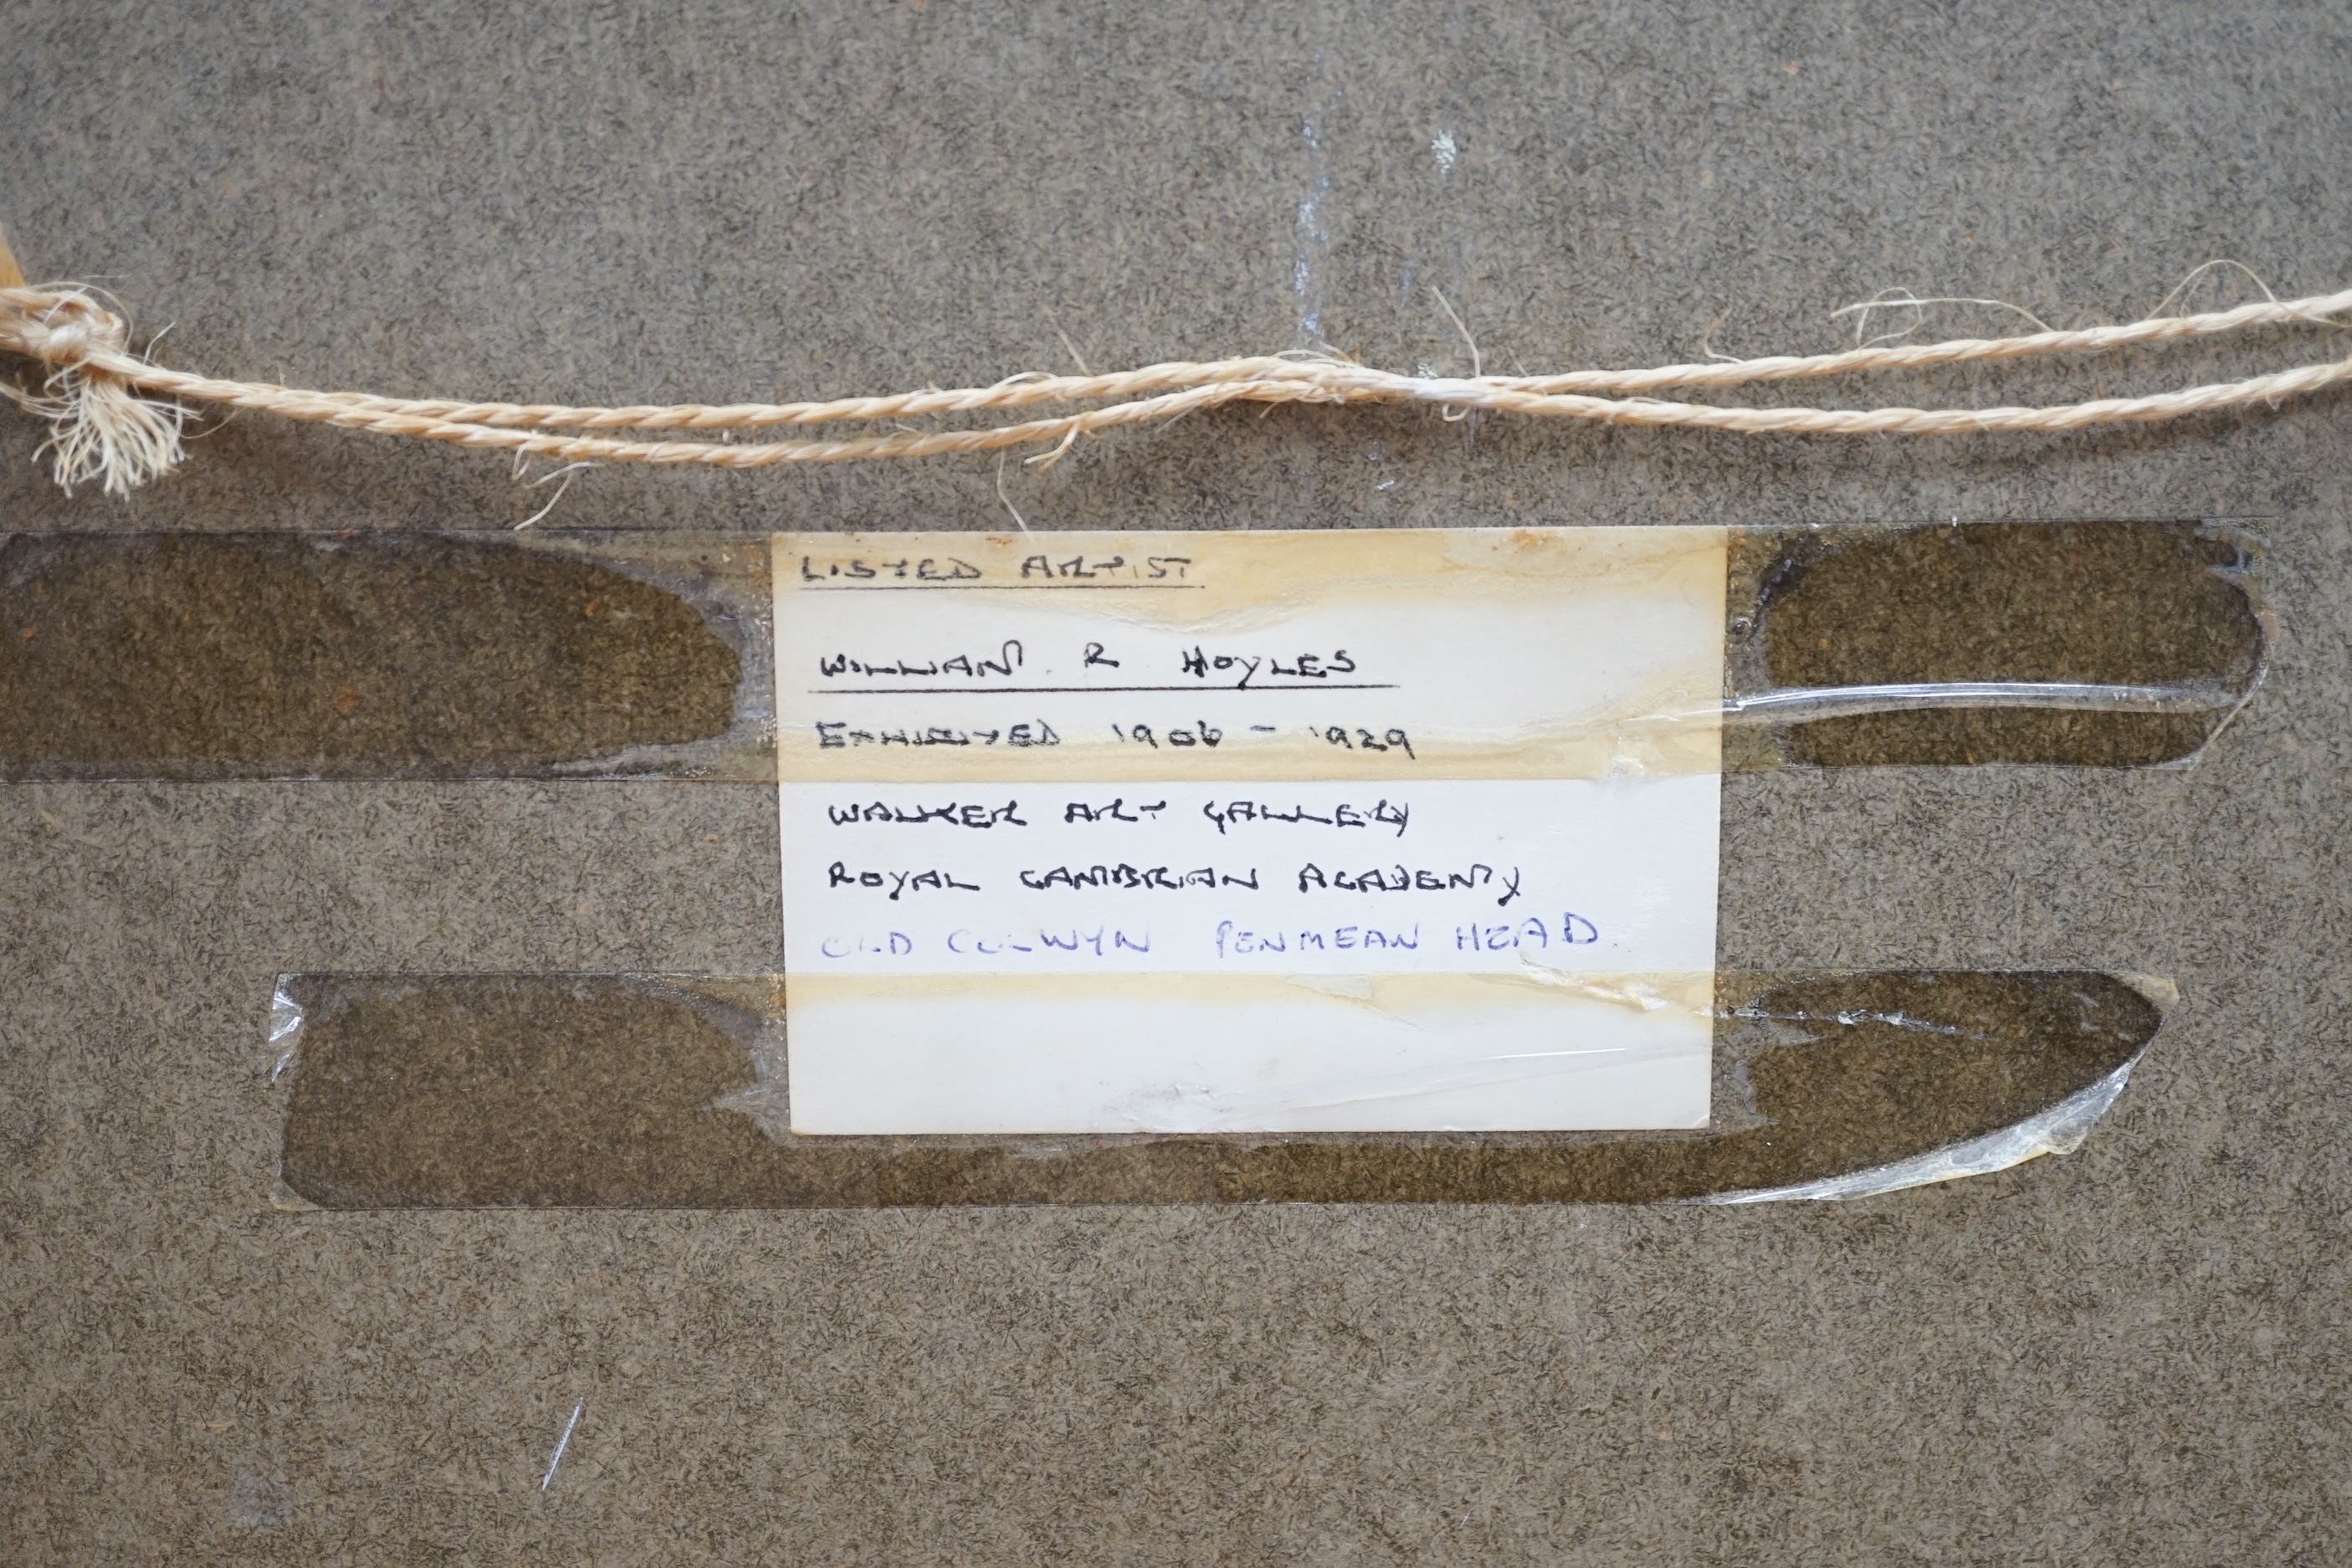 LISTED ARTIST
WILLIAM R HOYLES
EXHIBITED 1906 - 1929
WALKER ART GALLERY
ROYAL CAMBRIAN ACADEMY
OLD COLWYN PENMEAN HEAD